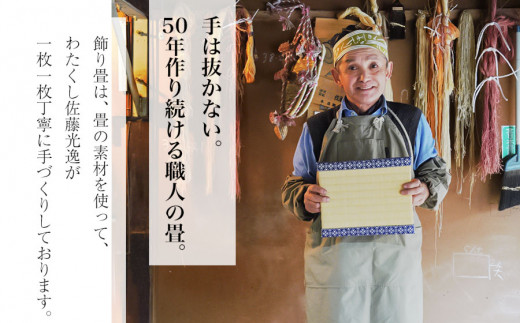 手は抜かない。
50年作り続ける職人の畳。
飾り畳は、畳の素材を使って、
わたくし佐藤光逸が
一枚一枚丁寧に手づくりしております。